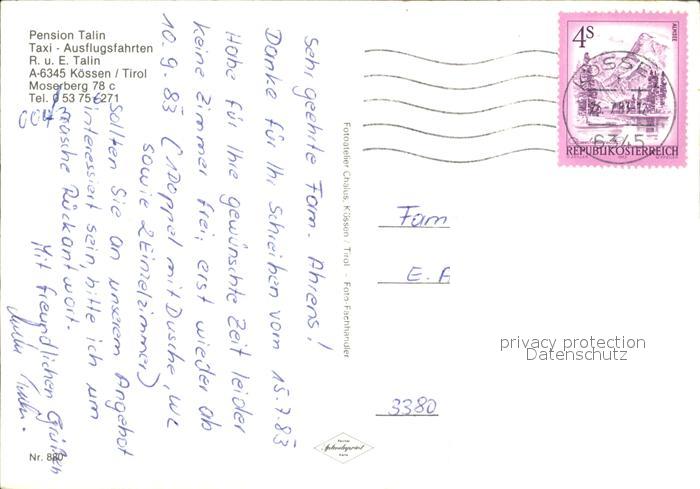 Pension Talin
Taxi - Ausflugsfahrten
R. u. E. Talin
A-6345 Kössen / Tirol
Moserberg 78 c
Tel. 0 53 75 / 271
Sehr geehrte Fam. Ahrens!
Danke für Ihr Schreiben vom 15.7.83
Habe für Ihre gewünschte Zeit leider
keine Zimmer frei, erst wieder ab
10.9.83 (1 Doppel mit Dusche, WC
sowie 2 Einzelzimmer)
Sollten Sie an unserem Angebot
interessiert sein, bitte ich um
Rückantwort.
Mit freundlichen Grüßen
Nr. 880
Fotoatelier Chalus, Kössen / Tirol - Foto-Fachhändler
4S
ALMSEE
REPUBLIK ÖSTERREICH
KÖSSEN
6345
Fam
E. A
3380
privacy protection
Datenschutz